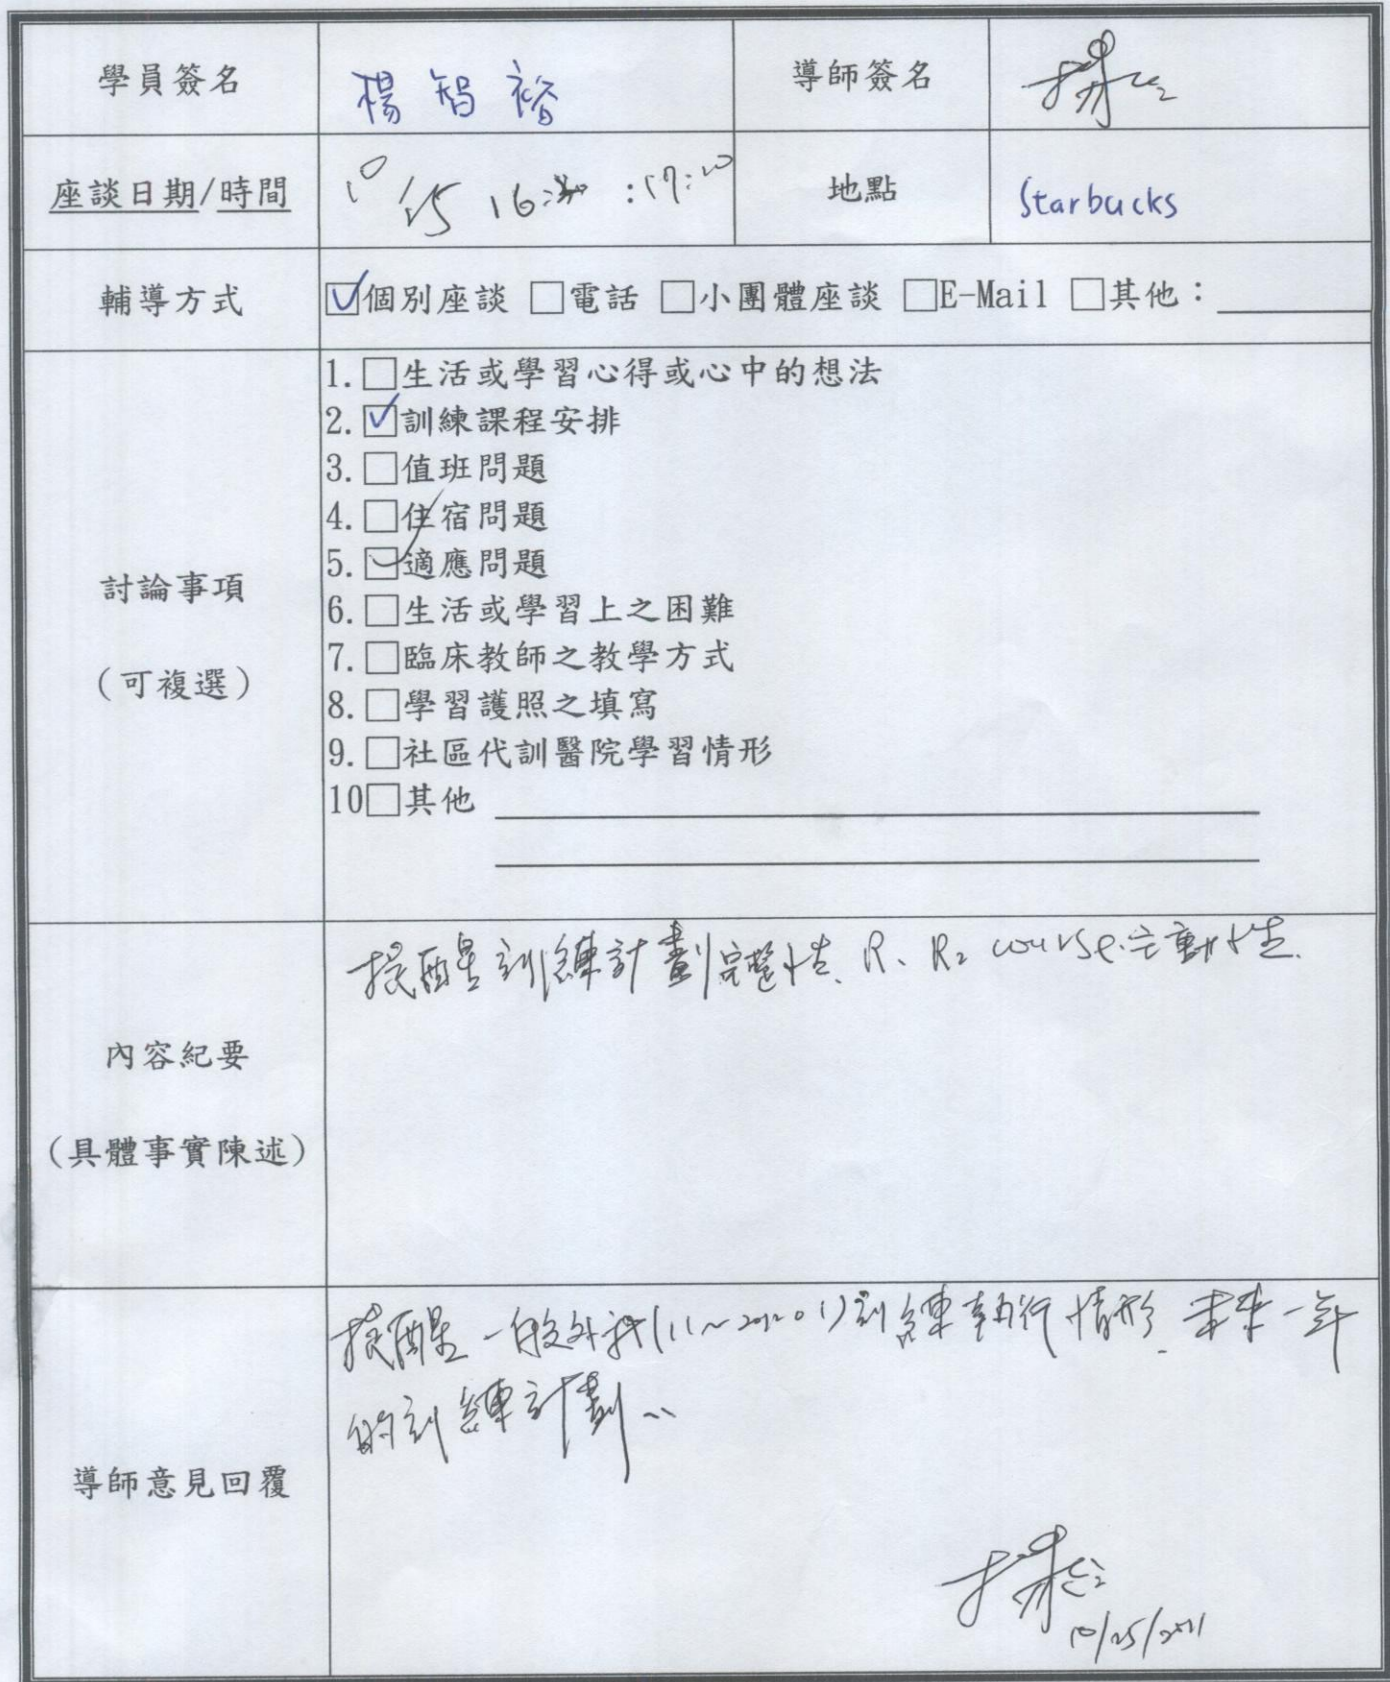 學員簽名 楊智裕 導師簽名
座談日期/時間 10/25 16: :17:20 地點 Starbucks
輔導方式 ☑個別座談 □電話 □小團體座談 □E-Mail □其他：
1.□生活或學習心得或心中的想法
2.☑訓練課程安排
3.□值班問題
4.□住宿問題
5.☑適應問題
6.□生活或學習上之困難
7.□臨床教師之教學方式
8.□學習護照之填寫
9.□社區代訓醫院學習情形
10□其他
討論事項
（可複選）
提醒訓練計劃完整性、R1、R2 course主動性.
內容紀要
（具體事實陳述）
提醒一般外科(11~2012 01)訓練執行情形、未來一年
的訓練計劃
導師意見回覆
10/25/2011